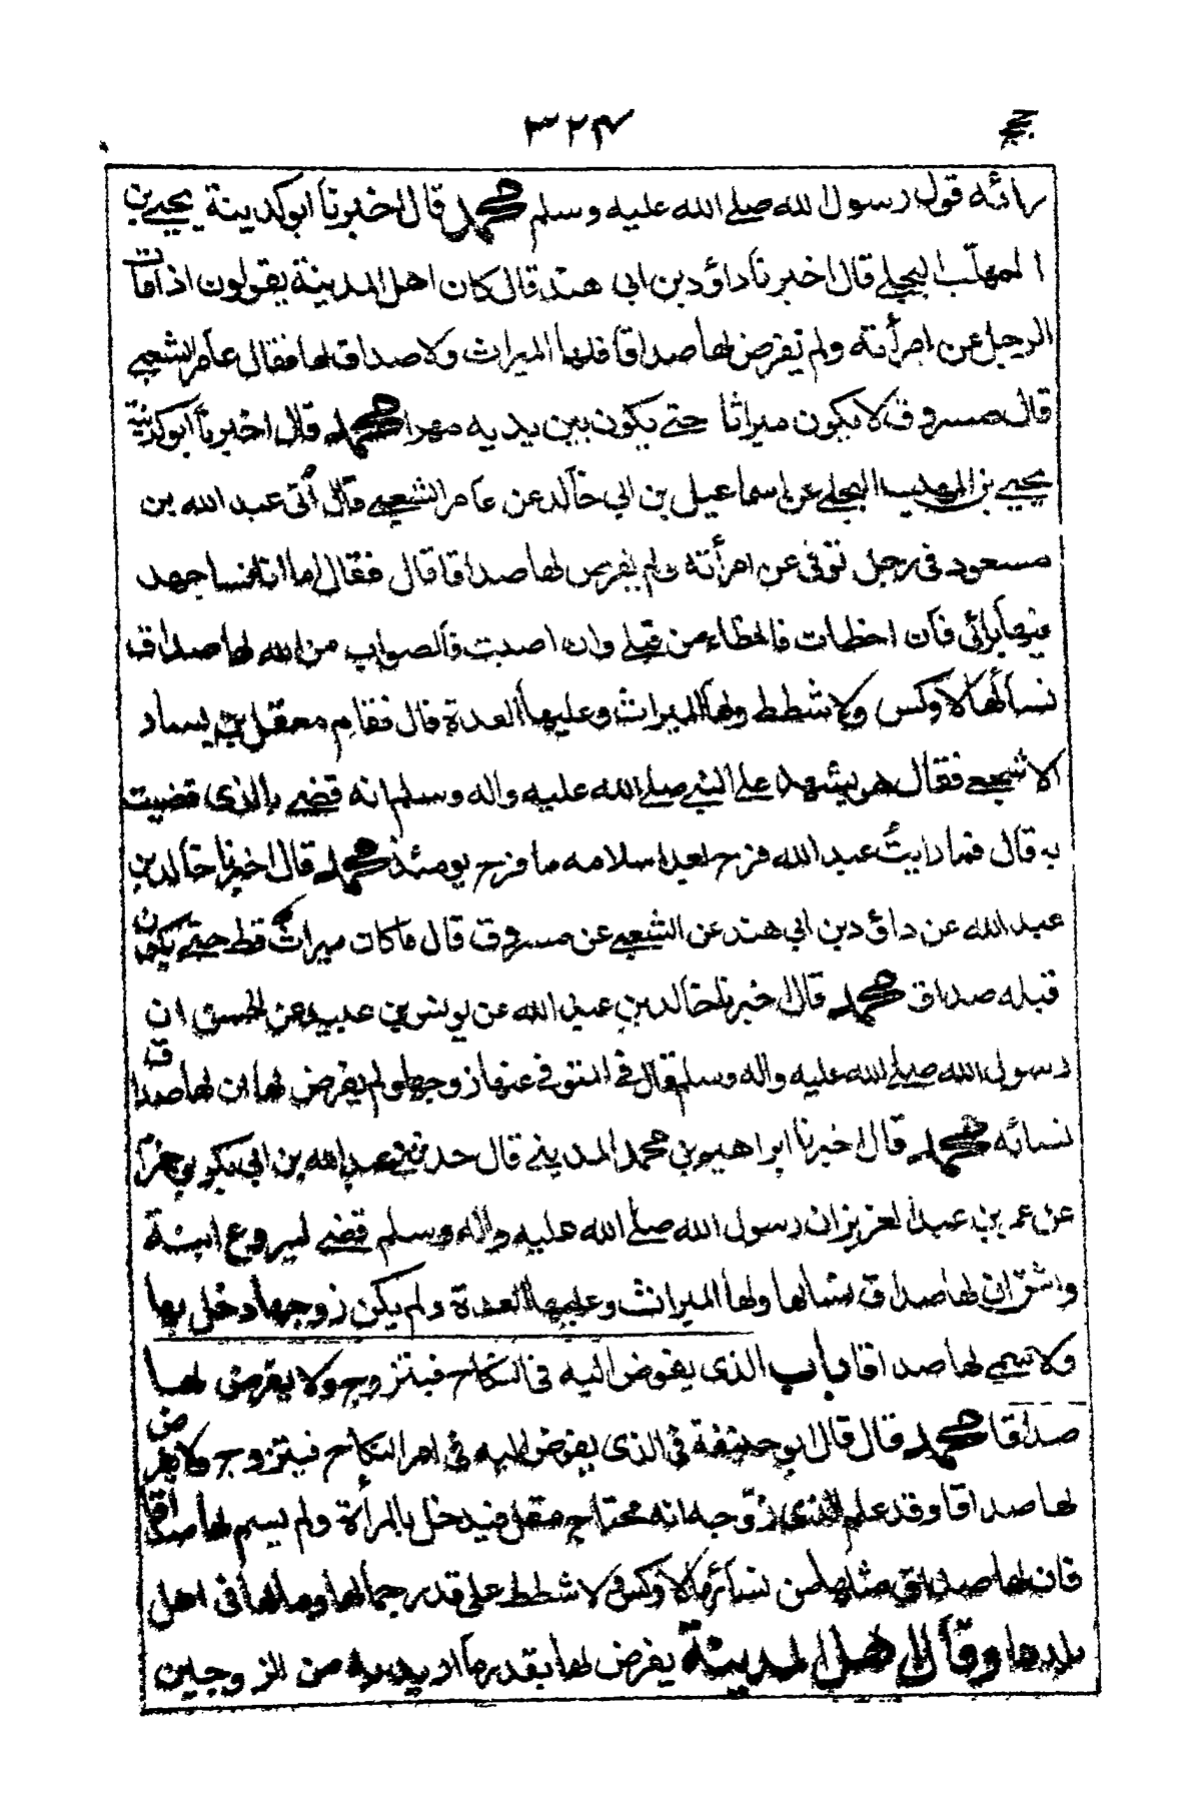 ٣٢٤
رائه قول رسول الله صلے الله عليه وسلم محمد قال اخبرنا ابو كدينة يحيے بن
المهلّب البجلے قال اخبرنا داؤد بن ابى هند قال كان اهل المدينة يقولون اذا مات
الرجل عن امرأته ولم يفرض لها صداقا فلها الميراث ولا صداق لها فقال عامر الشعبے
قال مسروق لا يكون ميراثا حتے يكون بين يديه مهرا محمد قال اخبرنا ابو كدينة
يحيے بن المهلب البجلے عن اسماعيل بن ابي خالد عن عامر الشعبے قال اُتى عبد الله بن
مسعود فى رجل توفى عن امرأته ولم يفرض لها صداقا قال فقال اما انا فسا جهد
فيها برائى فان اخطات فالخطاء من قبلے وان اصبت فالصواب من الله لها صداق
نسائها لا وكس ولا شطط ولها الميراث وعليها العدة قال فقام معقل بن يسار
الاشجعے فقال هو يشهد علے النبے صلے الله عليه واله وسلم انه قضے بالذى قضيت
به قال فما رايتُ عبد الله فرح بعد اسلامه ما فرح يومئذ محمد قال اخبرنا خالد بن
عبد الله عن داؤد بن ابي هند عن الشعبے عن مسروق قال ما كان ميراث قط حتے يكون
قبله صداق محمد قال اخبرنا خالد بن عبد الله عن يونس بن عبيد عن الحسن ان
رسول الله صلے الله عليه واله وسلم قال فى المتوفى عنها زوجها ولم يفرض لها ان لها صداق
نسائه محمد قال اخبرنا ابراهيم بن محمد المدينے قال حدثنے عبد الله بن ابى بكر بن حزم
عن عمر بن عبد العزيز ان رسول الله صلے الله عليه واله وسلم قضے لبروع ابنة
واشق ان لها صداق نسائها ولها الميراث وعليها العدة ولم يكن زوجها دخل بها
ولا سمى لها صداقا باب الذى يفوض اليه فى النكاح فيتزوج ولا يفرض لها
صداقا محمد قال قال ابو حنيفة فى الذى يفوض اليه فى امر النكاح فيتزوج ولا يفرض
لها صداقا وقد علم الذى زوّجه انه محتاج مقل فيدخل بالمرأة ولم يسم لها صداقا
فان لها صداق مثلها من نسائها لا وكس ولا شطط على قدر جمالها ومالها فى اهل
بلدها وقال اهل المدينة يفرض لها بقدر ما اد يديه من الزوجين